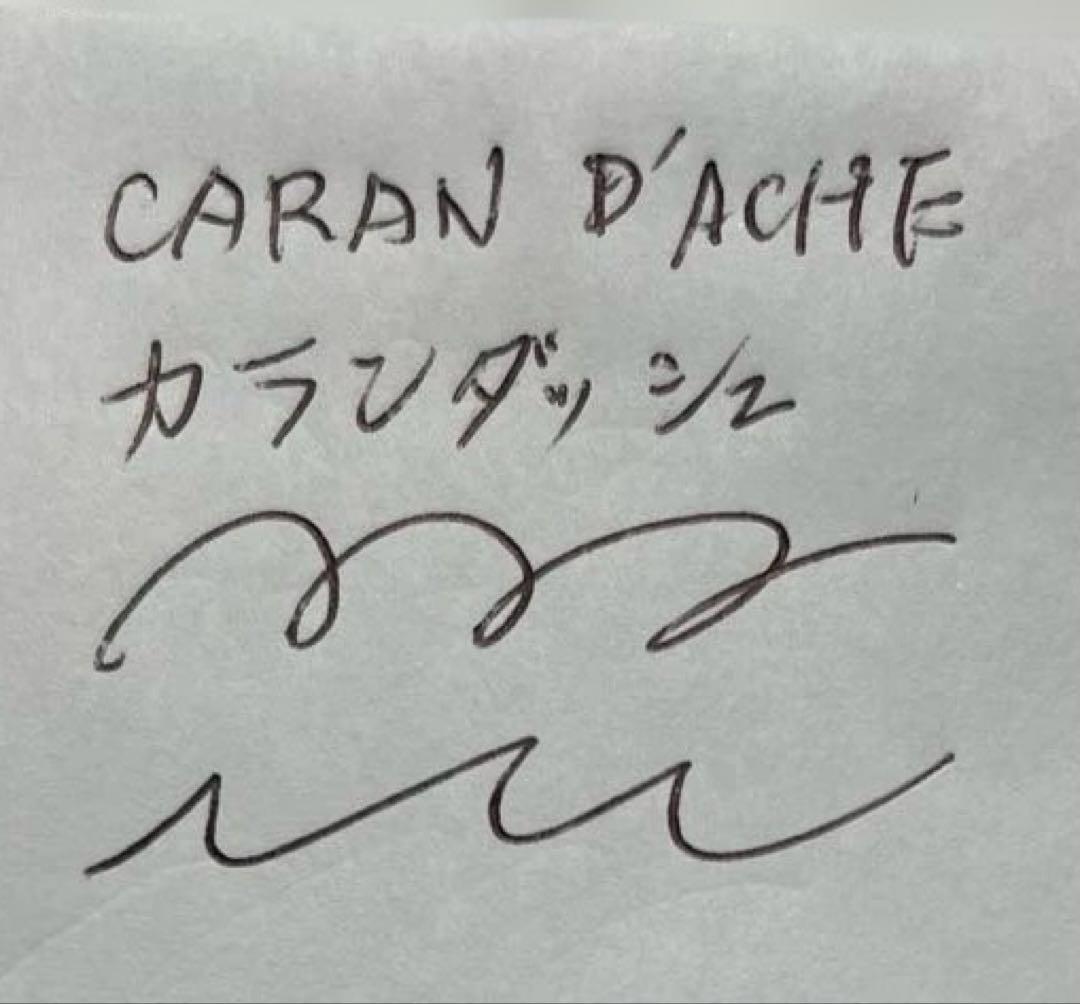 CARAN D'ACHE
カランダッシュ